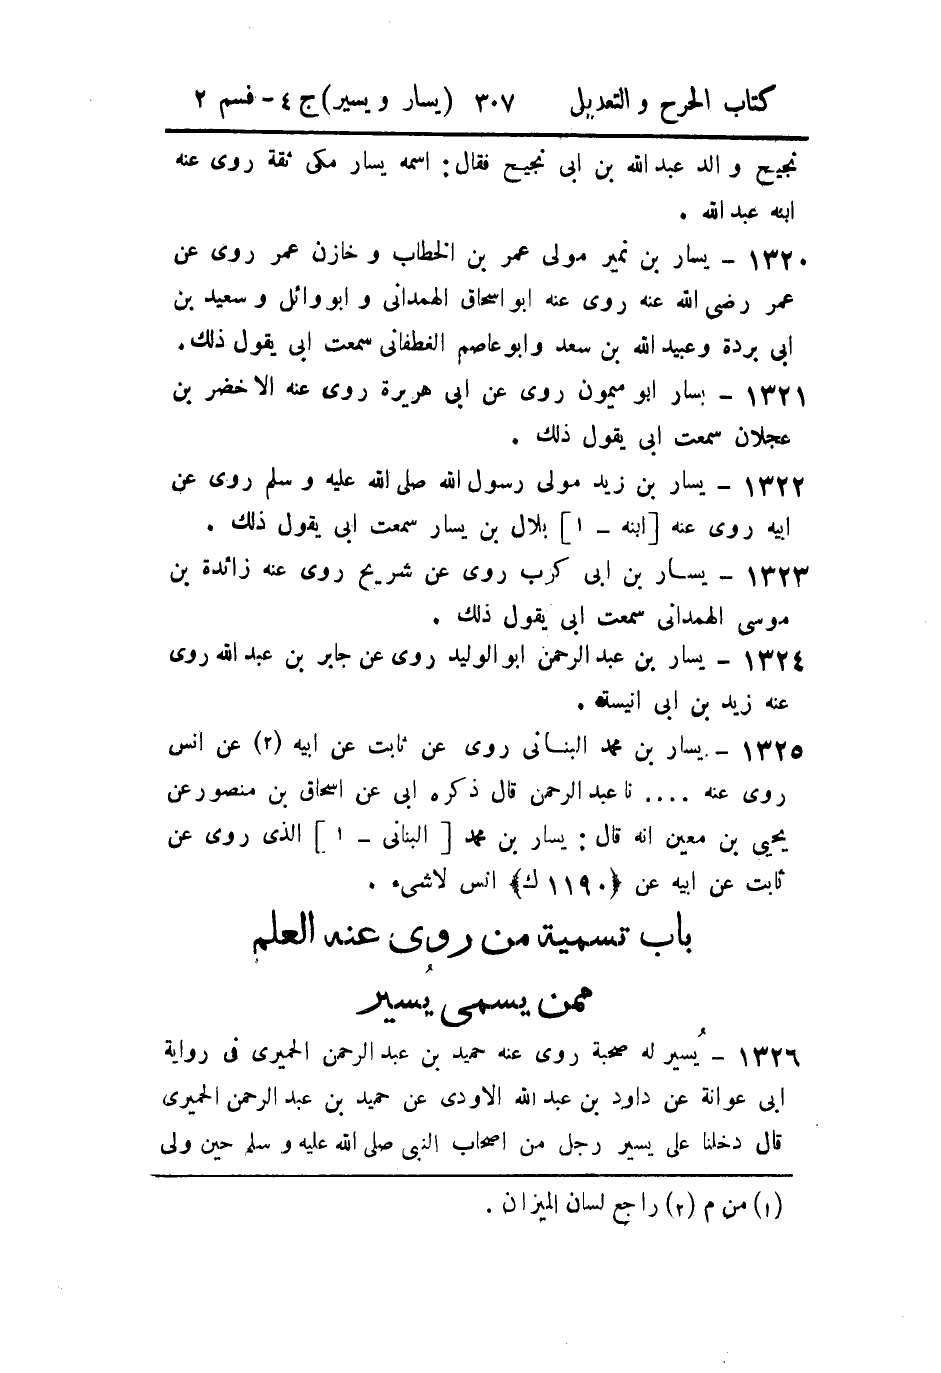 كتاب الجرح و التعديل ٣٠٧ (يسار و يسير) ج ٤ - قسم ٢
نجيح و الد عبد الله بن ابى نجيح فقال : اسمه يسار مكى ثقة روى عنه
ابنه عبد الله .
١٣٢٠ - يسار بن نمير مولى عمر بن الخطاب و خازن عمر روى عن
عمر رضى الله عنه روى عنه ابو اسحاق الهمدانى و ابو وائل و سعيد بن
ابى بردة و عبيد الله بن سعد وابو عاصم الغطفانى سمعت ابى يقول ذلك .
١٣٢١ - يسار ابو ميمون روى عن ابى هريرة روى عنه الاخضر بن
عجلان سمعت ابى يقول ذلك .
١٣٢٢ - يسار بن زيد مولى رسول الله صلى الله عليه و سلم روى عن
ابيه روى عنه [ ابنه - ١ ] بلال بن يسار سمعت ابى يقول ذلك .
١٣٢٣ - يسار بن ابى كرب روى عن شريح روى عنه زائدة بن
موسى الهمدانى سمعت ابى يقول ذلك .
١٣٢٤ - يسار بن عبد الرحمن ابو الوليد روى عن جابر بن عبد الله روى
عنه زيد بن ابى انيسة .
١٣٢٥ - يسار بن محمد البنانى روى عن ثابت عن ابيه (٢) عن انس
روى عنه .... نا عبد الرحمن قال ذكره ابى عن اسحاق بن منصور عن
يحيى بن معين انه قال : يسار بن محمد [ البنانى - ١ ] الذى روى عن
ثابت عن ابيه عن ﴿١١٩٠ ك﴾ انس لاشىء .
باب تسمية من روى عنه العلم
ممن يسمى يُسير
١٣٢٦ - يُسير له صحبة روى عنه حميد بن عبد الرحمن الحميرى فى رواية
ابى عوانة عن داود بن عبد الله الاودى عن حميد بن عبد الرحمن الحميرى
قال دخلنا على يسير رجل من اصحاب النبى صلى الله عليه و سلم حين ولى
(١) من م (٢) راجع لسان الميزان .